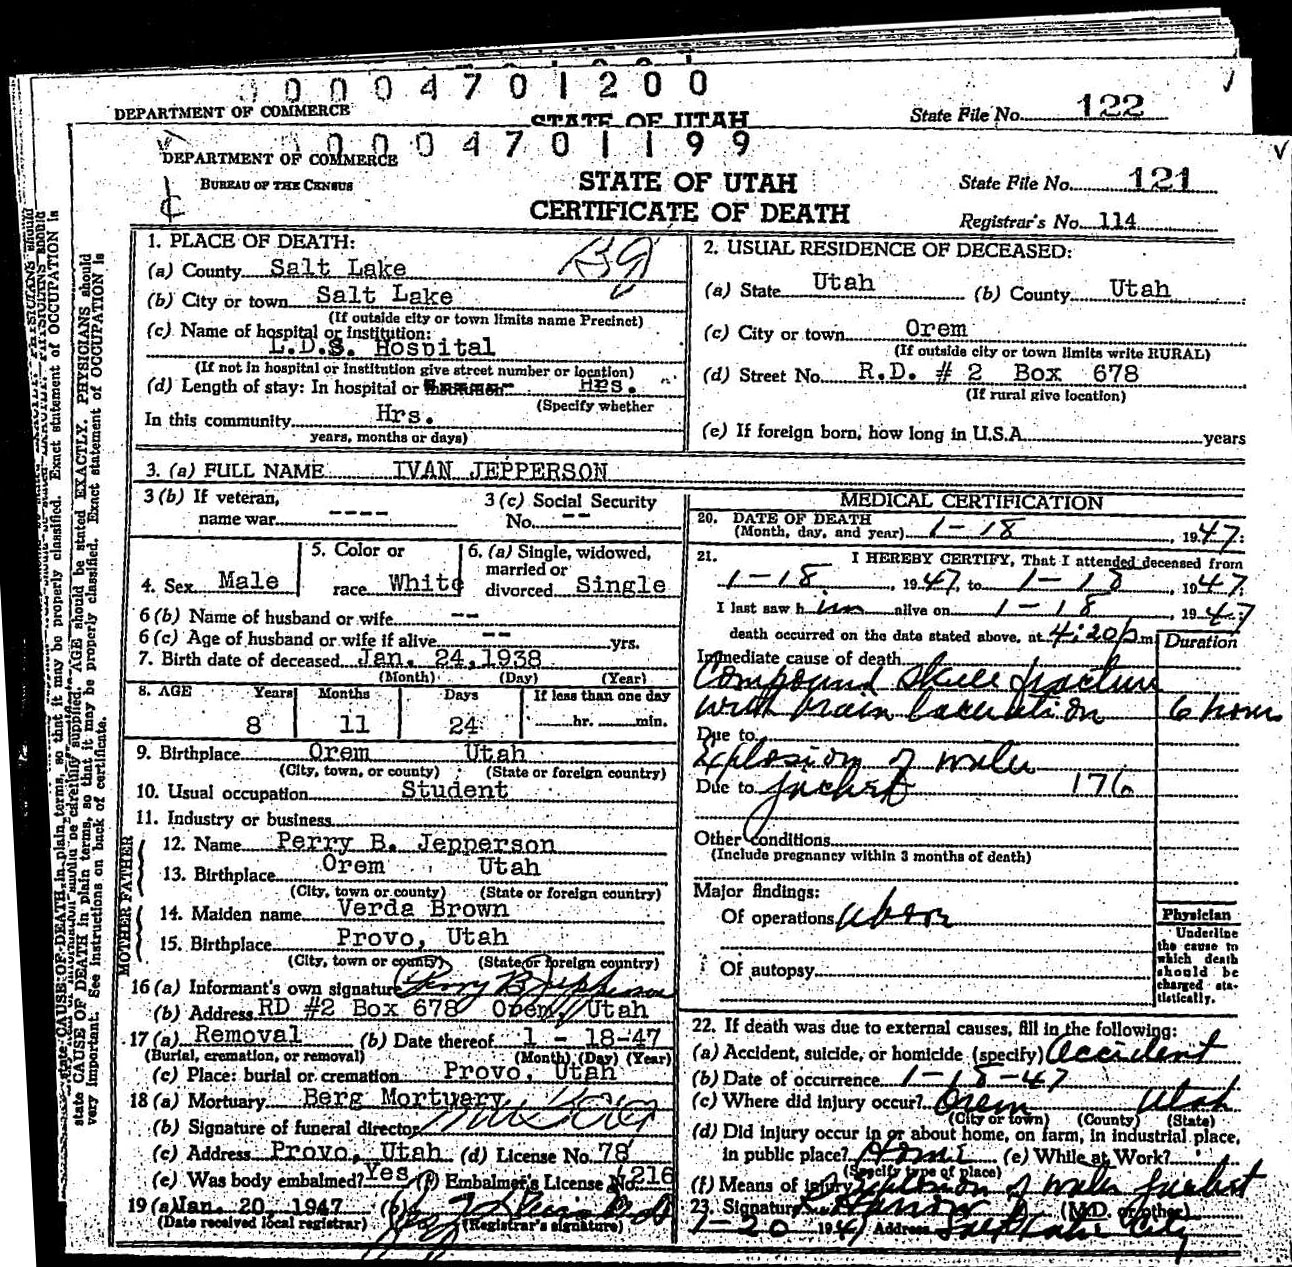 00004701200
DEPARTMENT OF COMMERCE
STATE OF UTAH
State File No. 122
00004701199
DEPARTMENT OF COMMERCE
BUREAU OF THE CENSUS
STATE OF UTAH
CERTIFICATE OF DEATH
State File No. 121
Registrar's No. 114
1. PLACE OF DEATH:
(a) County Salt Lake
(b) City or town Salt Lake
(If outside city or town limits name Precinct)
(c) Name of hospital or institution:
L.D.S. Hospital
(If not in hospital or institution give street number or location)
(d) Length of stay: In hospital or Hrs.
(Specify whether
In this community Hrs.
years, months or days)
2. USUAL RESIDENCE OF DECEASED:
(a) State Utah (b) County Utah
(c) City or town Orem
(If outside city or town limits write RURAL)
(d) Street No. R.D. # 2 Box 678
(If rural give location)
(e) If foreign born, how long in U.S.A. years
3. (a) FULL NAME IVAN JEPPERSON
3 (b) If veteran,
name war ----
3 (c) Social Security
No. --
4. Sex Male
5. Color or
race White
6. (a) Single, widowed,
married or
divorced Single
6 (b) Name of husband or wife --
6 (c) Age of husband or wife if alive -- yrs.
7. Birth date of deceased Jan. 24, 1938
(Month) (Day) (Year)
8. AGE Years Months Days If less than one day
8 11 24 hr. min.
9. Birthplace Orem Utah
(City, town, or county) (State or foreign country)
10. Usual occupation Student
11. Industry or business
FATHER
12. Name Perry B. Jepperson
13. Birthplace Orem Utah
(City, town or county) (State or foreign country)
MOTHER
14. Maiden name Verda Brown
15. Birthplace Provo, Utah
(City, town or county) (State or foreign country)
16 (a) Informant's own signature Perry B Jepperson
(b) Address RD #2 Box 678 Orem, Utah
17 (a) Removal (b) Date thereof 1 - 18-47
(Burial, cremation, or removal) (Month) (Day) (Year)
(c) Place: burial or cremation Provo, Utah
18 (a) Mortuary Berg Mortuary
(b) Signature of funeral director
(c) Address Provo, Utah (d) License No. 78
(e) Was body embalmed? Yes (f) Embalmer's License No. 216
19 (a) Jan. 20, 1947 (b)
(Date received local registrar) (Registrar's signature)
MEDICAL CERTIFICATION
20. DATE OF DEATH
(Month, day, and year) 1-18, 1947.
21. I HEREBY CERTIFY, That I attended deceased from
1-18, 1947, to 1-18, 1947.
I last saw him alive on 1-18, 1947.
death occurred on the date stated above, at 4:20 p m
Duration
Immediate cause of death
Compound skull fracture
with brain laceration 6 hours
Due to
Explosion of water
Due to jacket 176
Other conditions
(Include pregnancy within 3 months of death)
Major findings:
Of operations above
Of autopsy
Physician
Underline
the cause to
which death
should be
charged sta-
tistically.
22. If death was due to external causes, fill in the following:
(a) Accident, suicide, or homicide (specify) Accident
(b) Date of occurrence 1-18-47
(c) Where did injury occur? Orem Utah
(City or town) (County) (State)
(d) Did injury occur in or about home, on farm, in industrial place,
in public place? Home (e) While at Work?
(Specify type of place)
(f) Means of injury Explosion of water jacket
23. Signature (M.D. or other)
1-20 1947 Address Salt Lake City
state CAUSE OF DEATH in plain terms, so that it may be properly classified. Exact statement of OCCUPATION is
very important. See instructions on back of certificate.